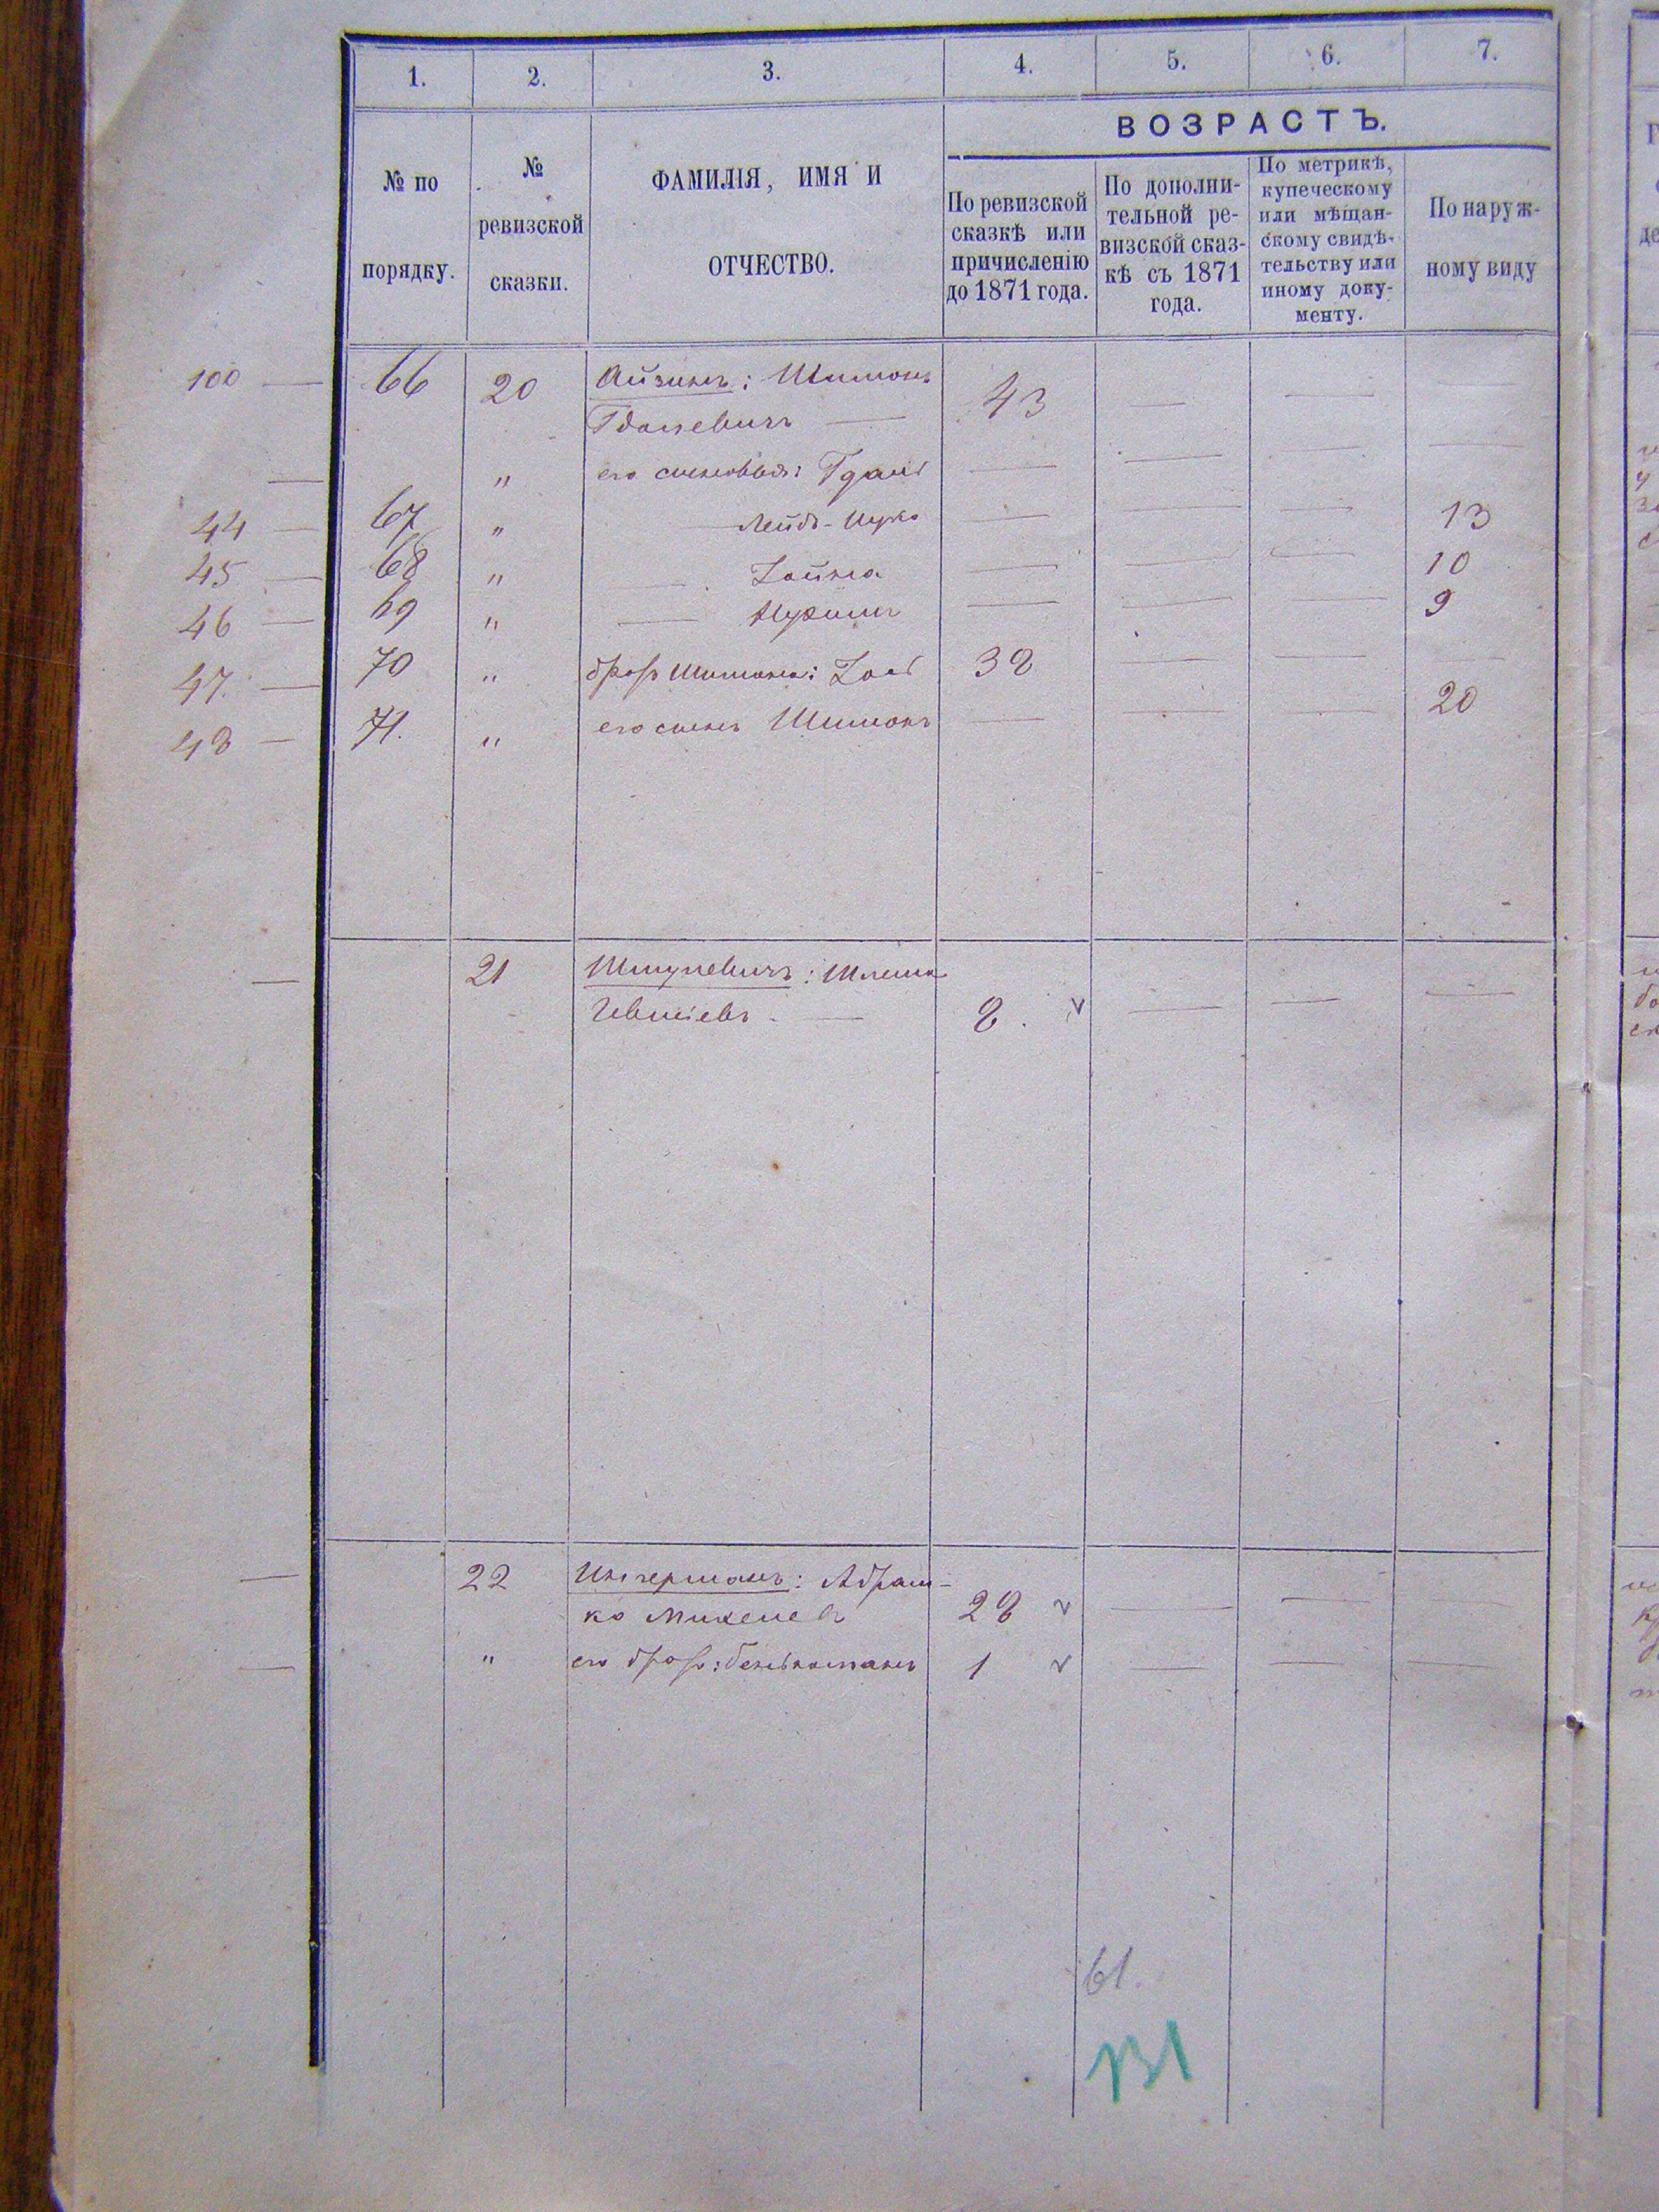 1. 2. 3. 4. 5. 6. 7.
№ по порядку.
№ ревизской сказки.
ФАМИЛІЯ, ИМЯ И ОТЧЕСТВО.
ВОЗРАСТЪ.
По ревизской сказкѣ или причисленію до 1871 года.
По дополнительной ревизской сказкѣ съ 1871 года.
По метрикѣ, купеческому или мѣщанскому свидѣтельству или иному документу.
По наружному виду
100 — 66 20 Айзинъ: Шимонъ
Гдалевичъ — 43 — —
— " его сыновья: Гдаль — — — —
44 — 67 " — Лейбъ-Ицко — — — 13
45 — 68 " — Хайка — — — 10
46 — 69 " — Нухимъ — — — 9
47. — 70 " братъ Шимона: 32 — — —
48 — 71. " его сынъ Шимонъ — — — 20
— 21 Шмулевичъ: Шлема
Евшіевъ. — 8. v — — —
— 22 Ингерманъ: Абрам-
ко 28 v — — —
— " его братъ: 1 v — — —
61.
131